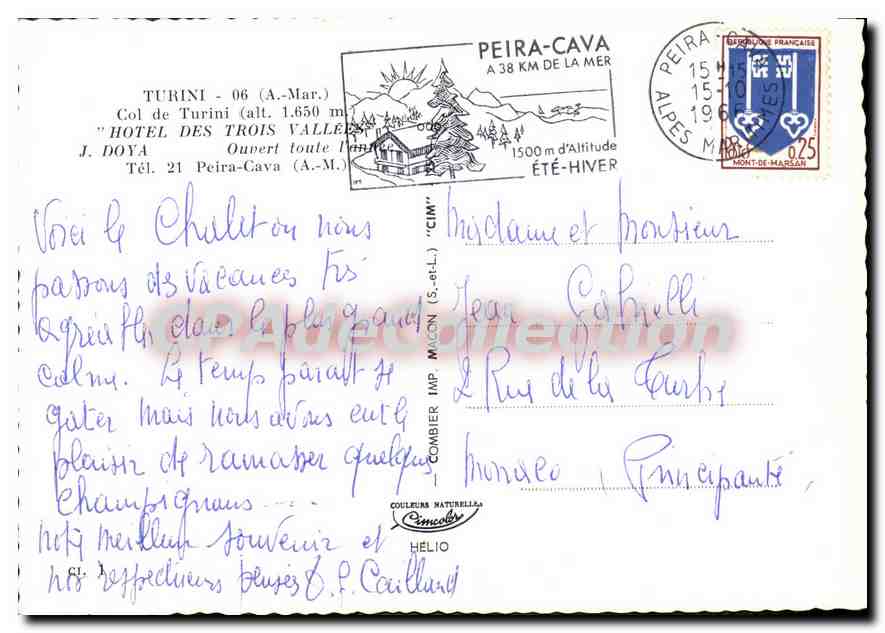 TURINI - 06 (A.-Mar.)
Col de Turini (alt. 1.650 m
"HOTEL DES TROIS VALLÉES
J. DOYA Ouvert toute l'année
Tél. 21 Peira-Cava (A.-M.)
PEIRA-CAVA
A 38 KM DE LA MER
1500 m d'Altitude
ÉTÉ-HIVER
PEIRA-CAVA
15H15
15-10
196
ALPES MARITIMES
REPUBLIQUE FRANÇAISE
0,25
MONT-DE-MARSAN
Voici le Chalet ou nous
passons des vacances très
agréables dans le plus grand
calme. Le temps parait se
gater mais nous avons eut le
plaisir de ramasser quelques
Champignons ....
notre meilleur souvenir et
nos respectueuses pensées
CL. 1
COMBIER IMP. MACON (S.-et-L.) "CIM"
COULEURS NATURELLES
Cimcolor
HÉLIO
Madame et Monsieur
Jean Gabrielli
2 Rue de la Turbie
Monaco, Principauté
CPAdeCollection